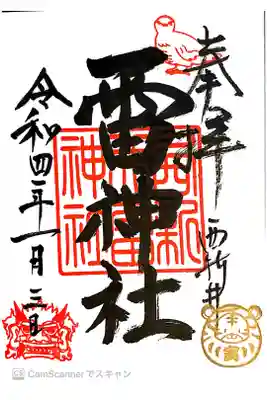 奉拝
西新井
雷神社
令和四年一月三日
寅
CS CamScannerでスキャン